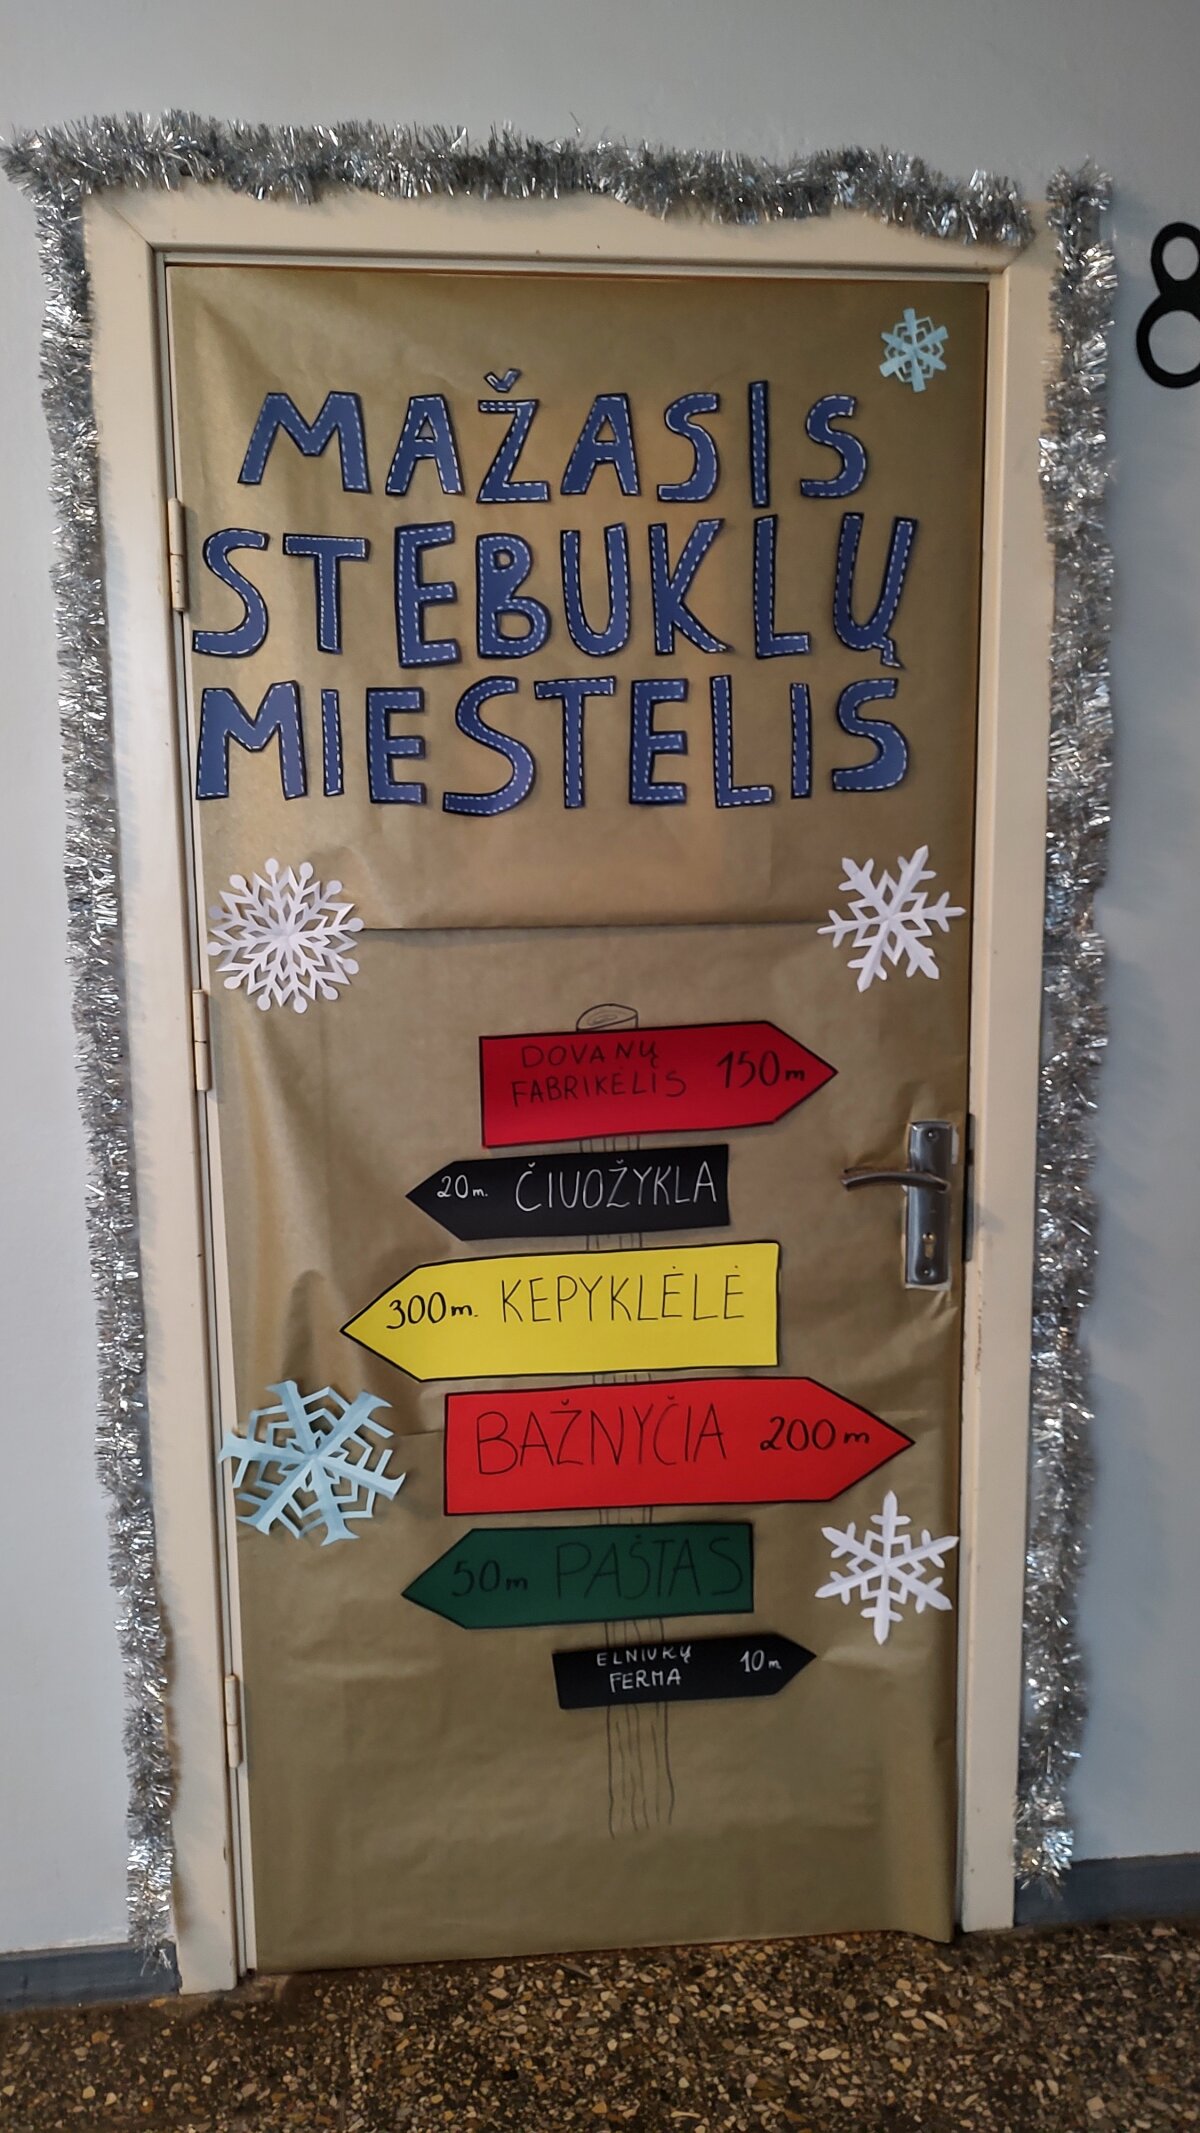 8
MAŽASIS
STEBUKLŲ
MIESTELIS
DOVANŲ
FABRIKĖLIS 150m
20m. ČIUOŽYKLA
300m. KEPYKLĖLĖ
BAŽNYČIA 200m
50m PAŠTAS
ELNIUKŲ
FERMA 10m